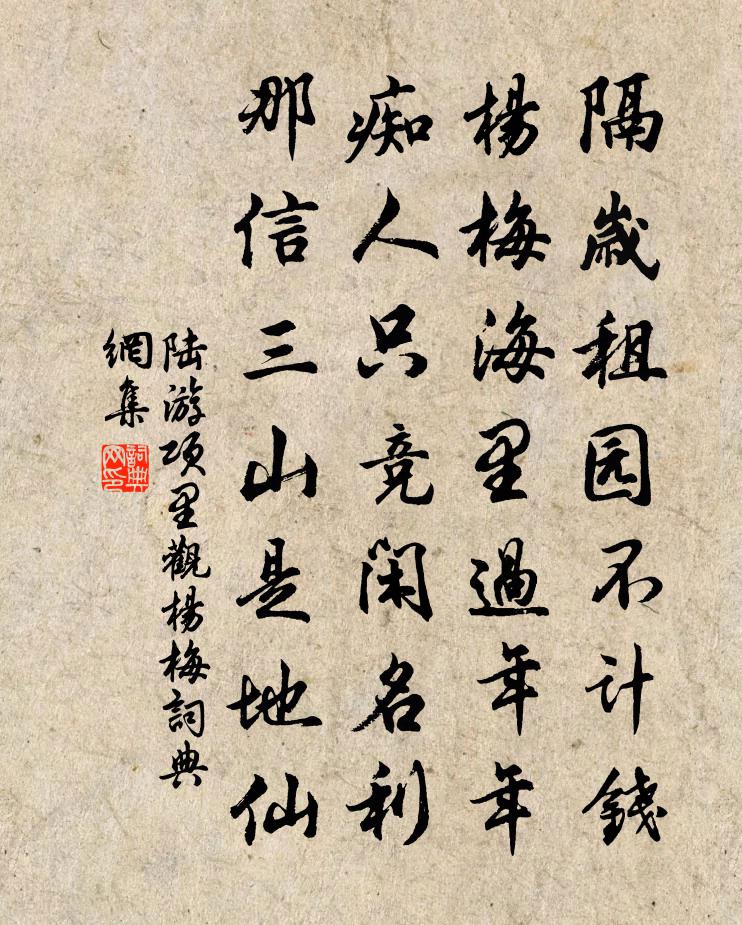 隔歲租园不计錢
楊梅海里過年年
痴人只竞閑名利
那信三山是地仙
陆游项里觀楊梅詞典
網集
詞典
网印